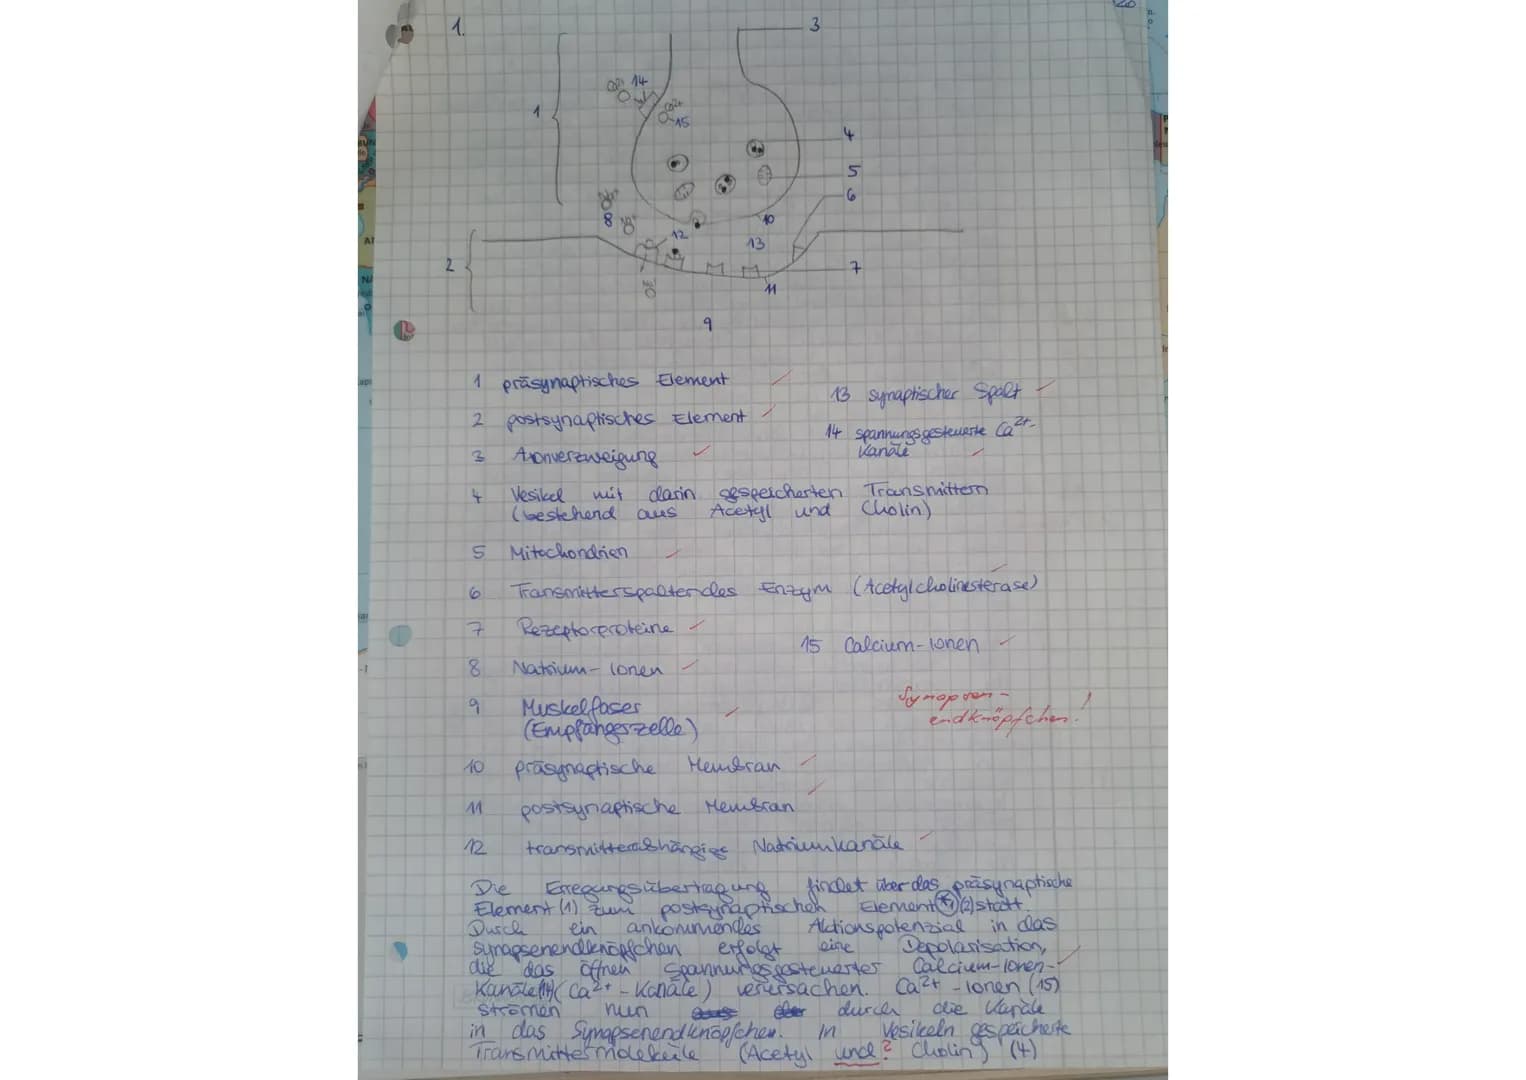 1.
3
14
Ca2+
1
Ca2+
15
4
5
6
8
10
12
13
2
7
11
9
1 präsynaptisches Element
13 synaptischer Spalt
2 postsynaptisches Element
14 spannungsgesteuerte Ca2+-
Kanäle
3 Axonverzweigung
4 Vesikel mit darin gespeicherten Transmittern
(bestehend aus Acetyl und Cholin)
5 Mitochondrien
6 Transmitterspaltendes Enzym (Acetylcholinesterase)
7 Rezeptorproteine
15 Calcium-Ionen
8 Natrium-Ionen
Synapsen-
endknöpfchen!
9 Muskelfaser
(Empfängerzelle)
10 präsynaptische Membran
11 postsynaptische Membran
12 transmitterabhängige Natriumkanäle
Die Erregungsübertragung findet über das präsynaptische
Element (1) zum postsynaptischen Element (2) statt.
Durch ein ankommendes Aktionspotenzial in das
Synapsenendknöpfchen erfolgt eine Depolarisation,
die das öffnen spannungsgesteuerter Calcium-Ionen-
Kanäle (14) (Ca2+-Kanäle) verursachen. Ca2+-Ionen (15)
strömen nun durch die Kanäle
in das Synapsenendknöpfchen. In Vesikeln gespeicherte
Transmittermoleküle (Acetyl und? Cholin) (4)